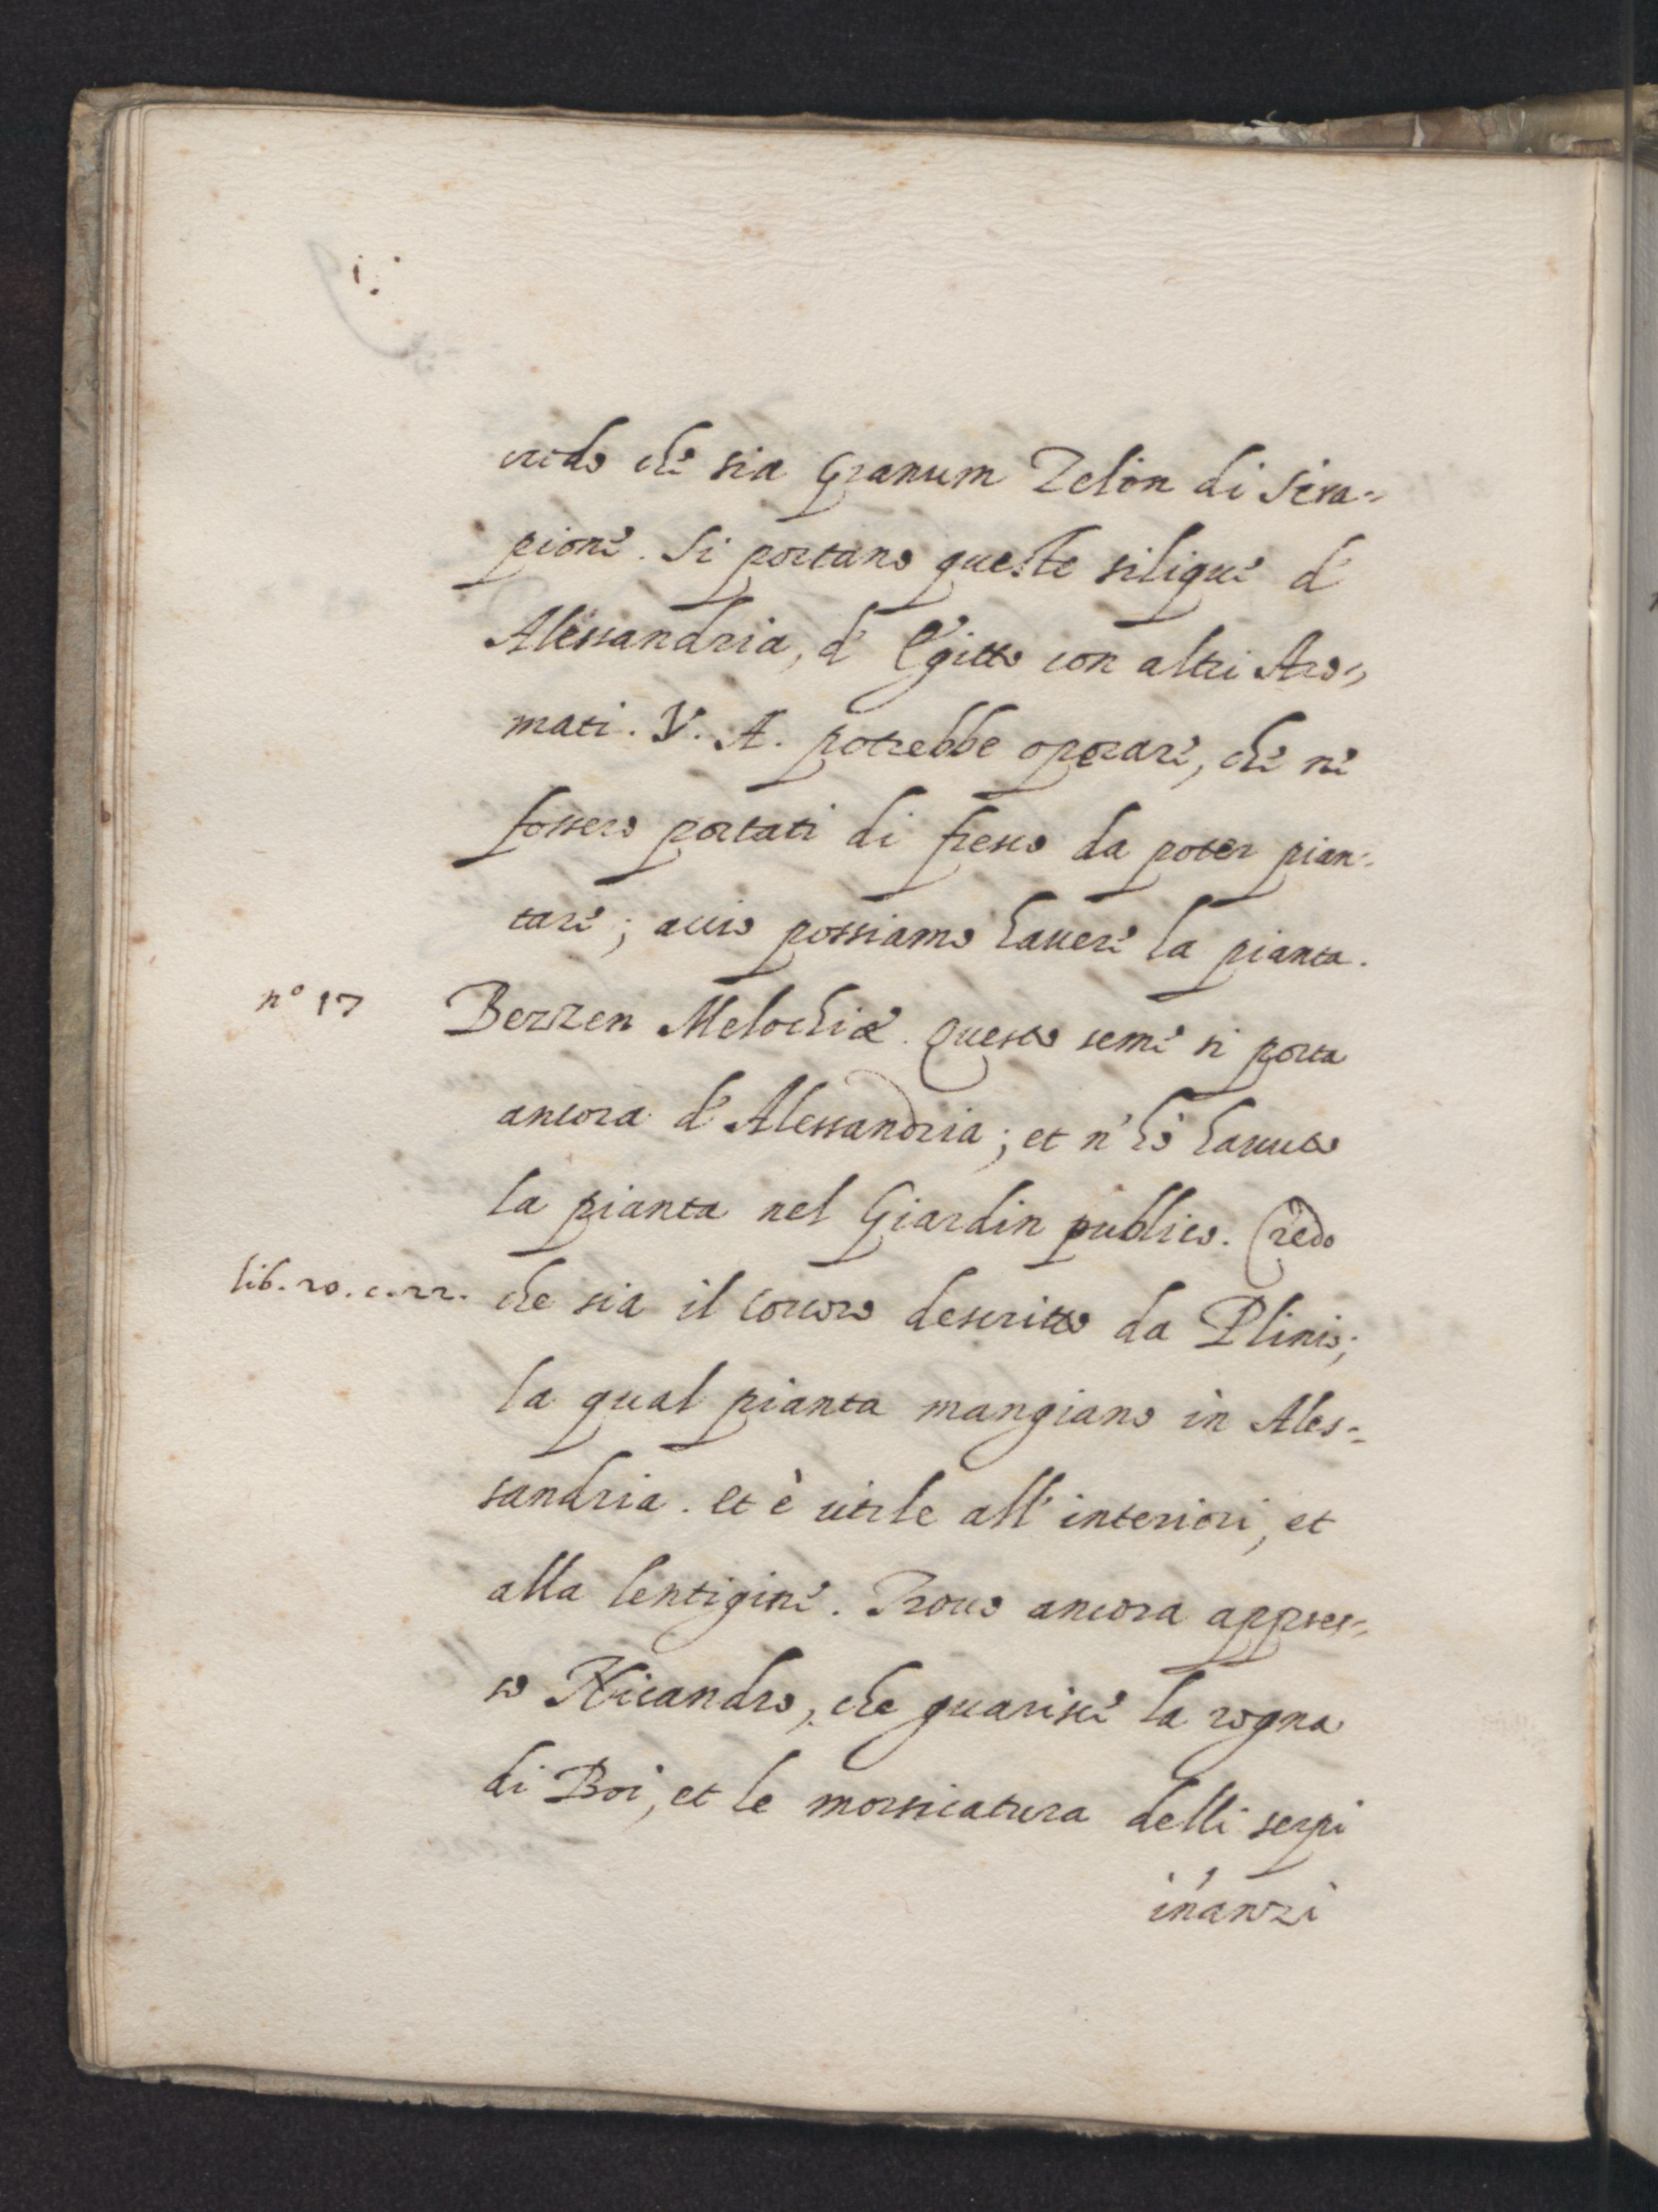 credo che sia Granum Zelin di Sera=
pione. Si portano queste silique d'
Alessandria, d' Egitto con altri Aro=
mati. V. A. potrebbe operare, che ne
fossero portati di fresco da poter pian=
tare; accio possiamo havere la pianta.
n° 17 Berzen Melochiæ. Questo seme si porta
ancora d' Alessandria; et n' hò havuto
la pianta nel Giardin publico. Credo
lib. 20. c. 22. che sia il corcoro descritto da Plinio;
la qual pianta mangiano in Ales=
sandria. et è utile all' interiori, et
alla lentigine. Trovo ancora appres=
so Nicandro, che guarisce la rogna
di Boi, et le morsicatura delli serpi
inanzi